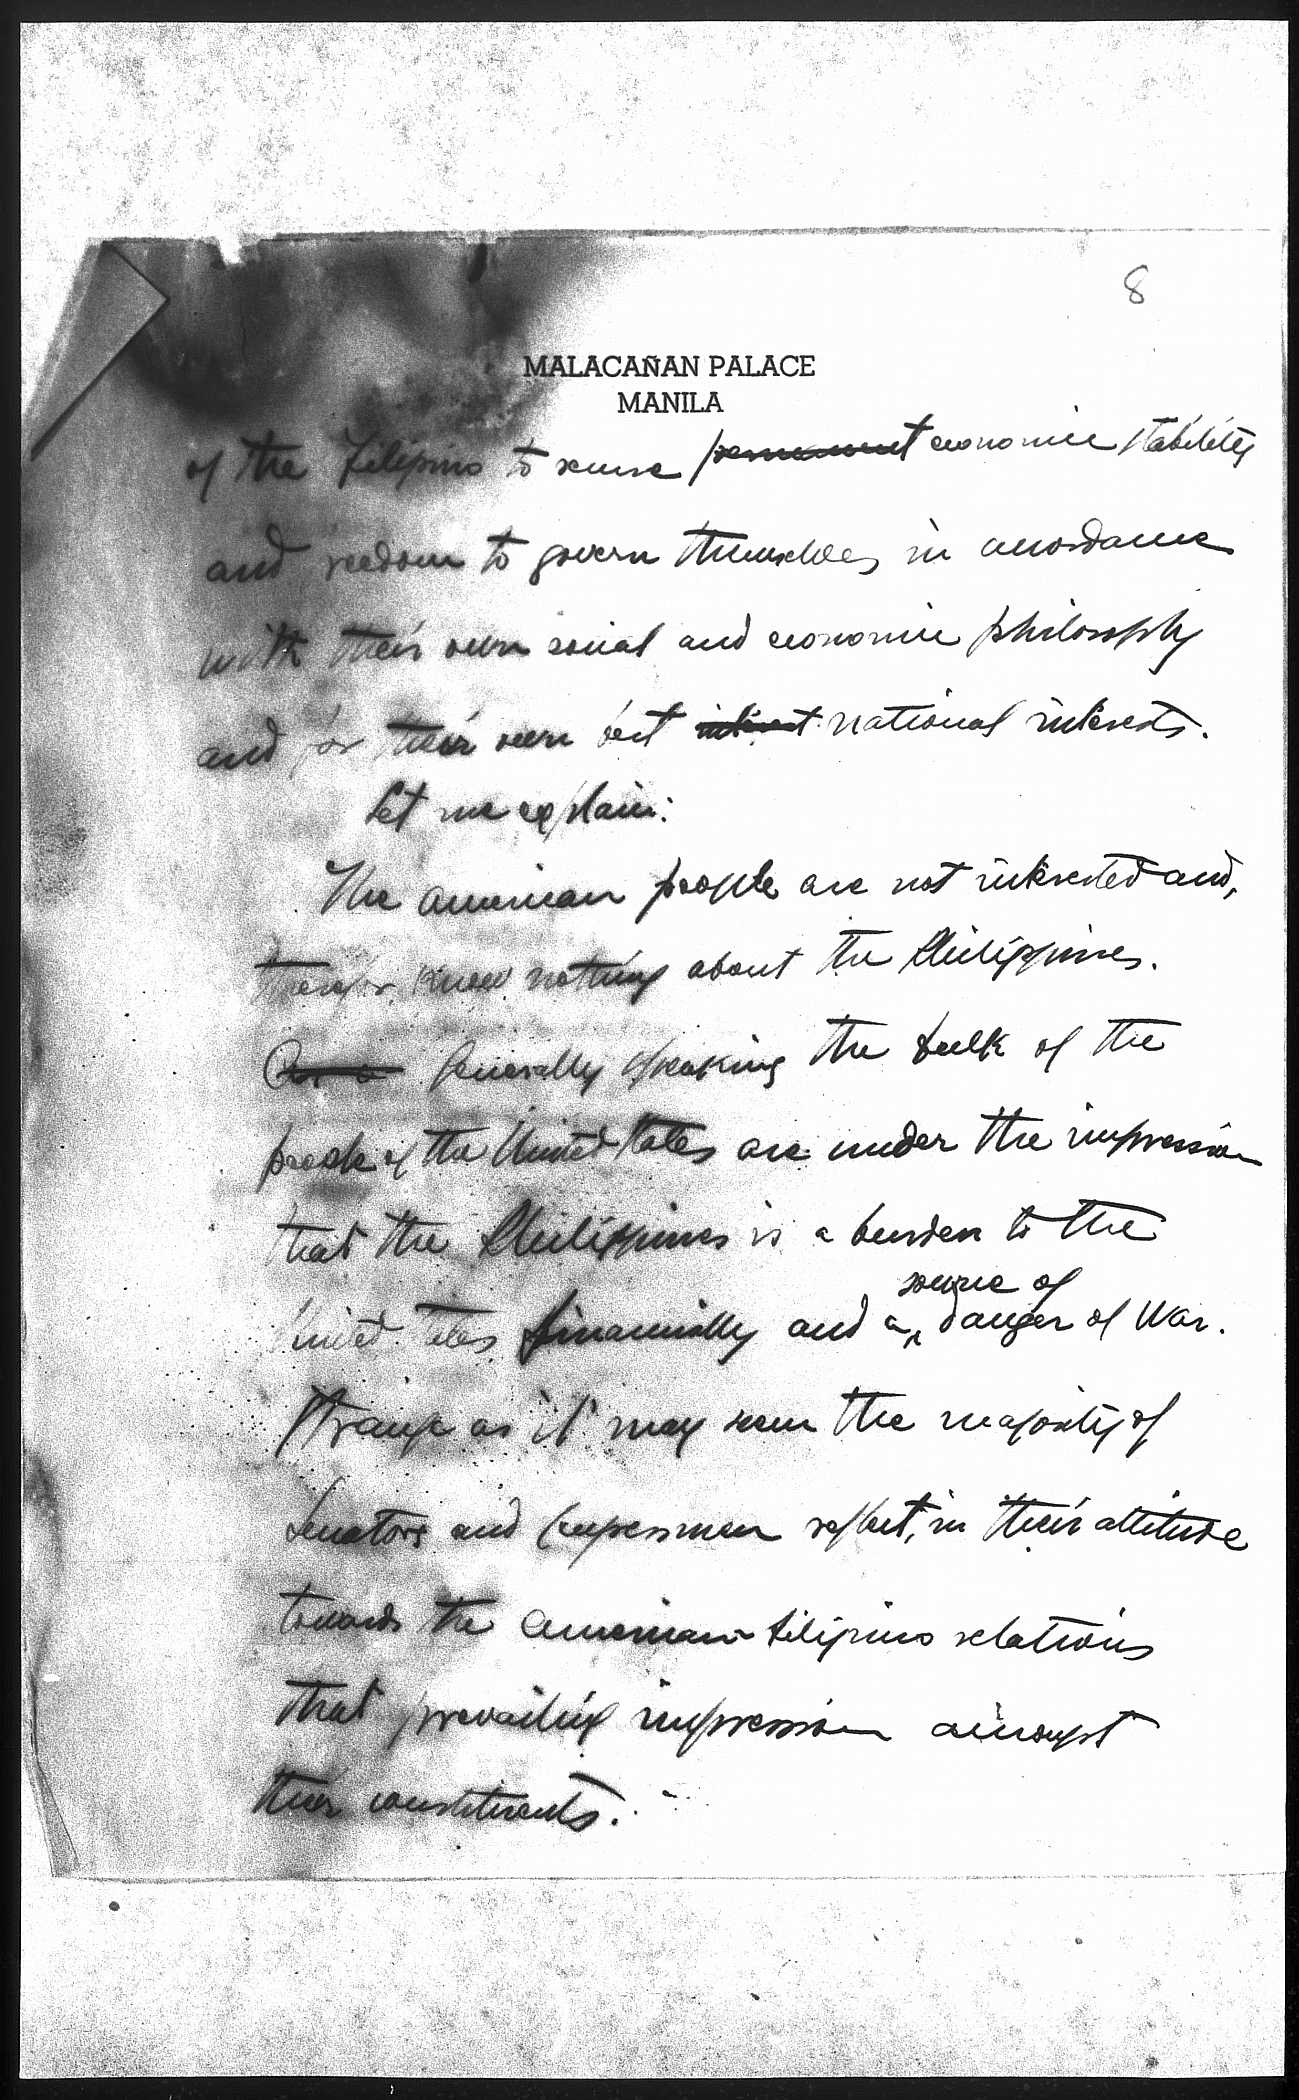 8
MALACAÑAN PALACE
MANILA
of the Filipino to secure permanent economic stability
and freedom to govern themselves in accordance
with their own social and economic philosophy
and for their own best interest national interests.
Let me explain:
The American people are not interested and,
therefor, know nothing about the Philippines.
Generally speaking the bulk of the
people of the United States are under the impression
that the Philippines is a burden to the
source of
United States financially and a danger of War.
Strange as it may seem the majority of
Senators and Congressmen reflect, in their attitude
towards the American-Filipino relations
that prevailing impression amongst
their constituents.